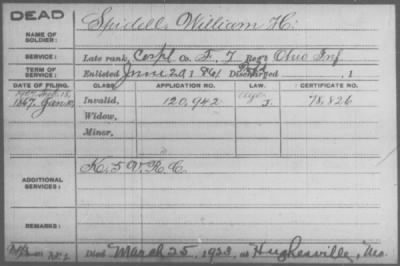 DEAD
NAME OF SOLDIER: Spidell William H.
SERVICE: Late rank, Corpl Co. F, 7 Reg't Ohio Inf
TERM OF SERVICE: Enlisted June 20, 1861 Discharged , 1
DATE OF FILING. CLASS. APPLICATION NO. LAW. CERTIFICATE NO.
1867 Jan Invalid, 120,942 78,826
Widow,
Minor,
ADDITIONAL SERVICES: K. 5 V.R.C.
REMARKS:
Died March 25, 1923, at Hughesville, Mo.